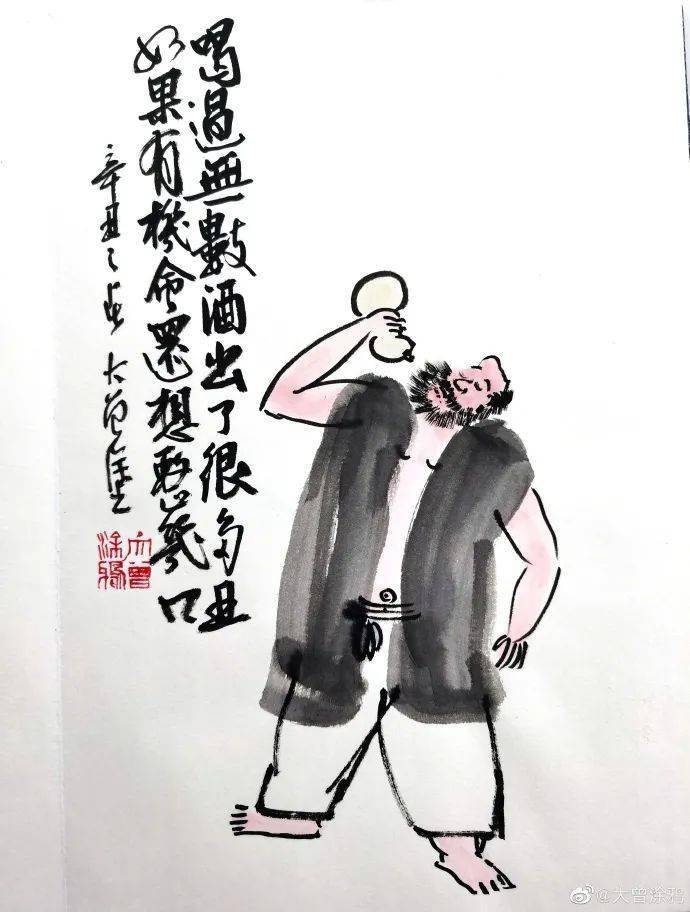 喝過無數酒出了很多丑
如果有機会還想幾口
辛丑之春 大曾塗
大曾
涂鸦
@大曾涂鸦